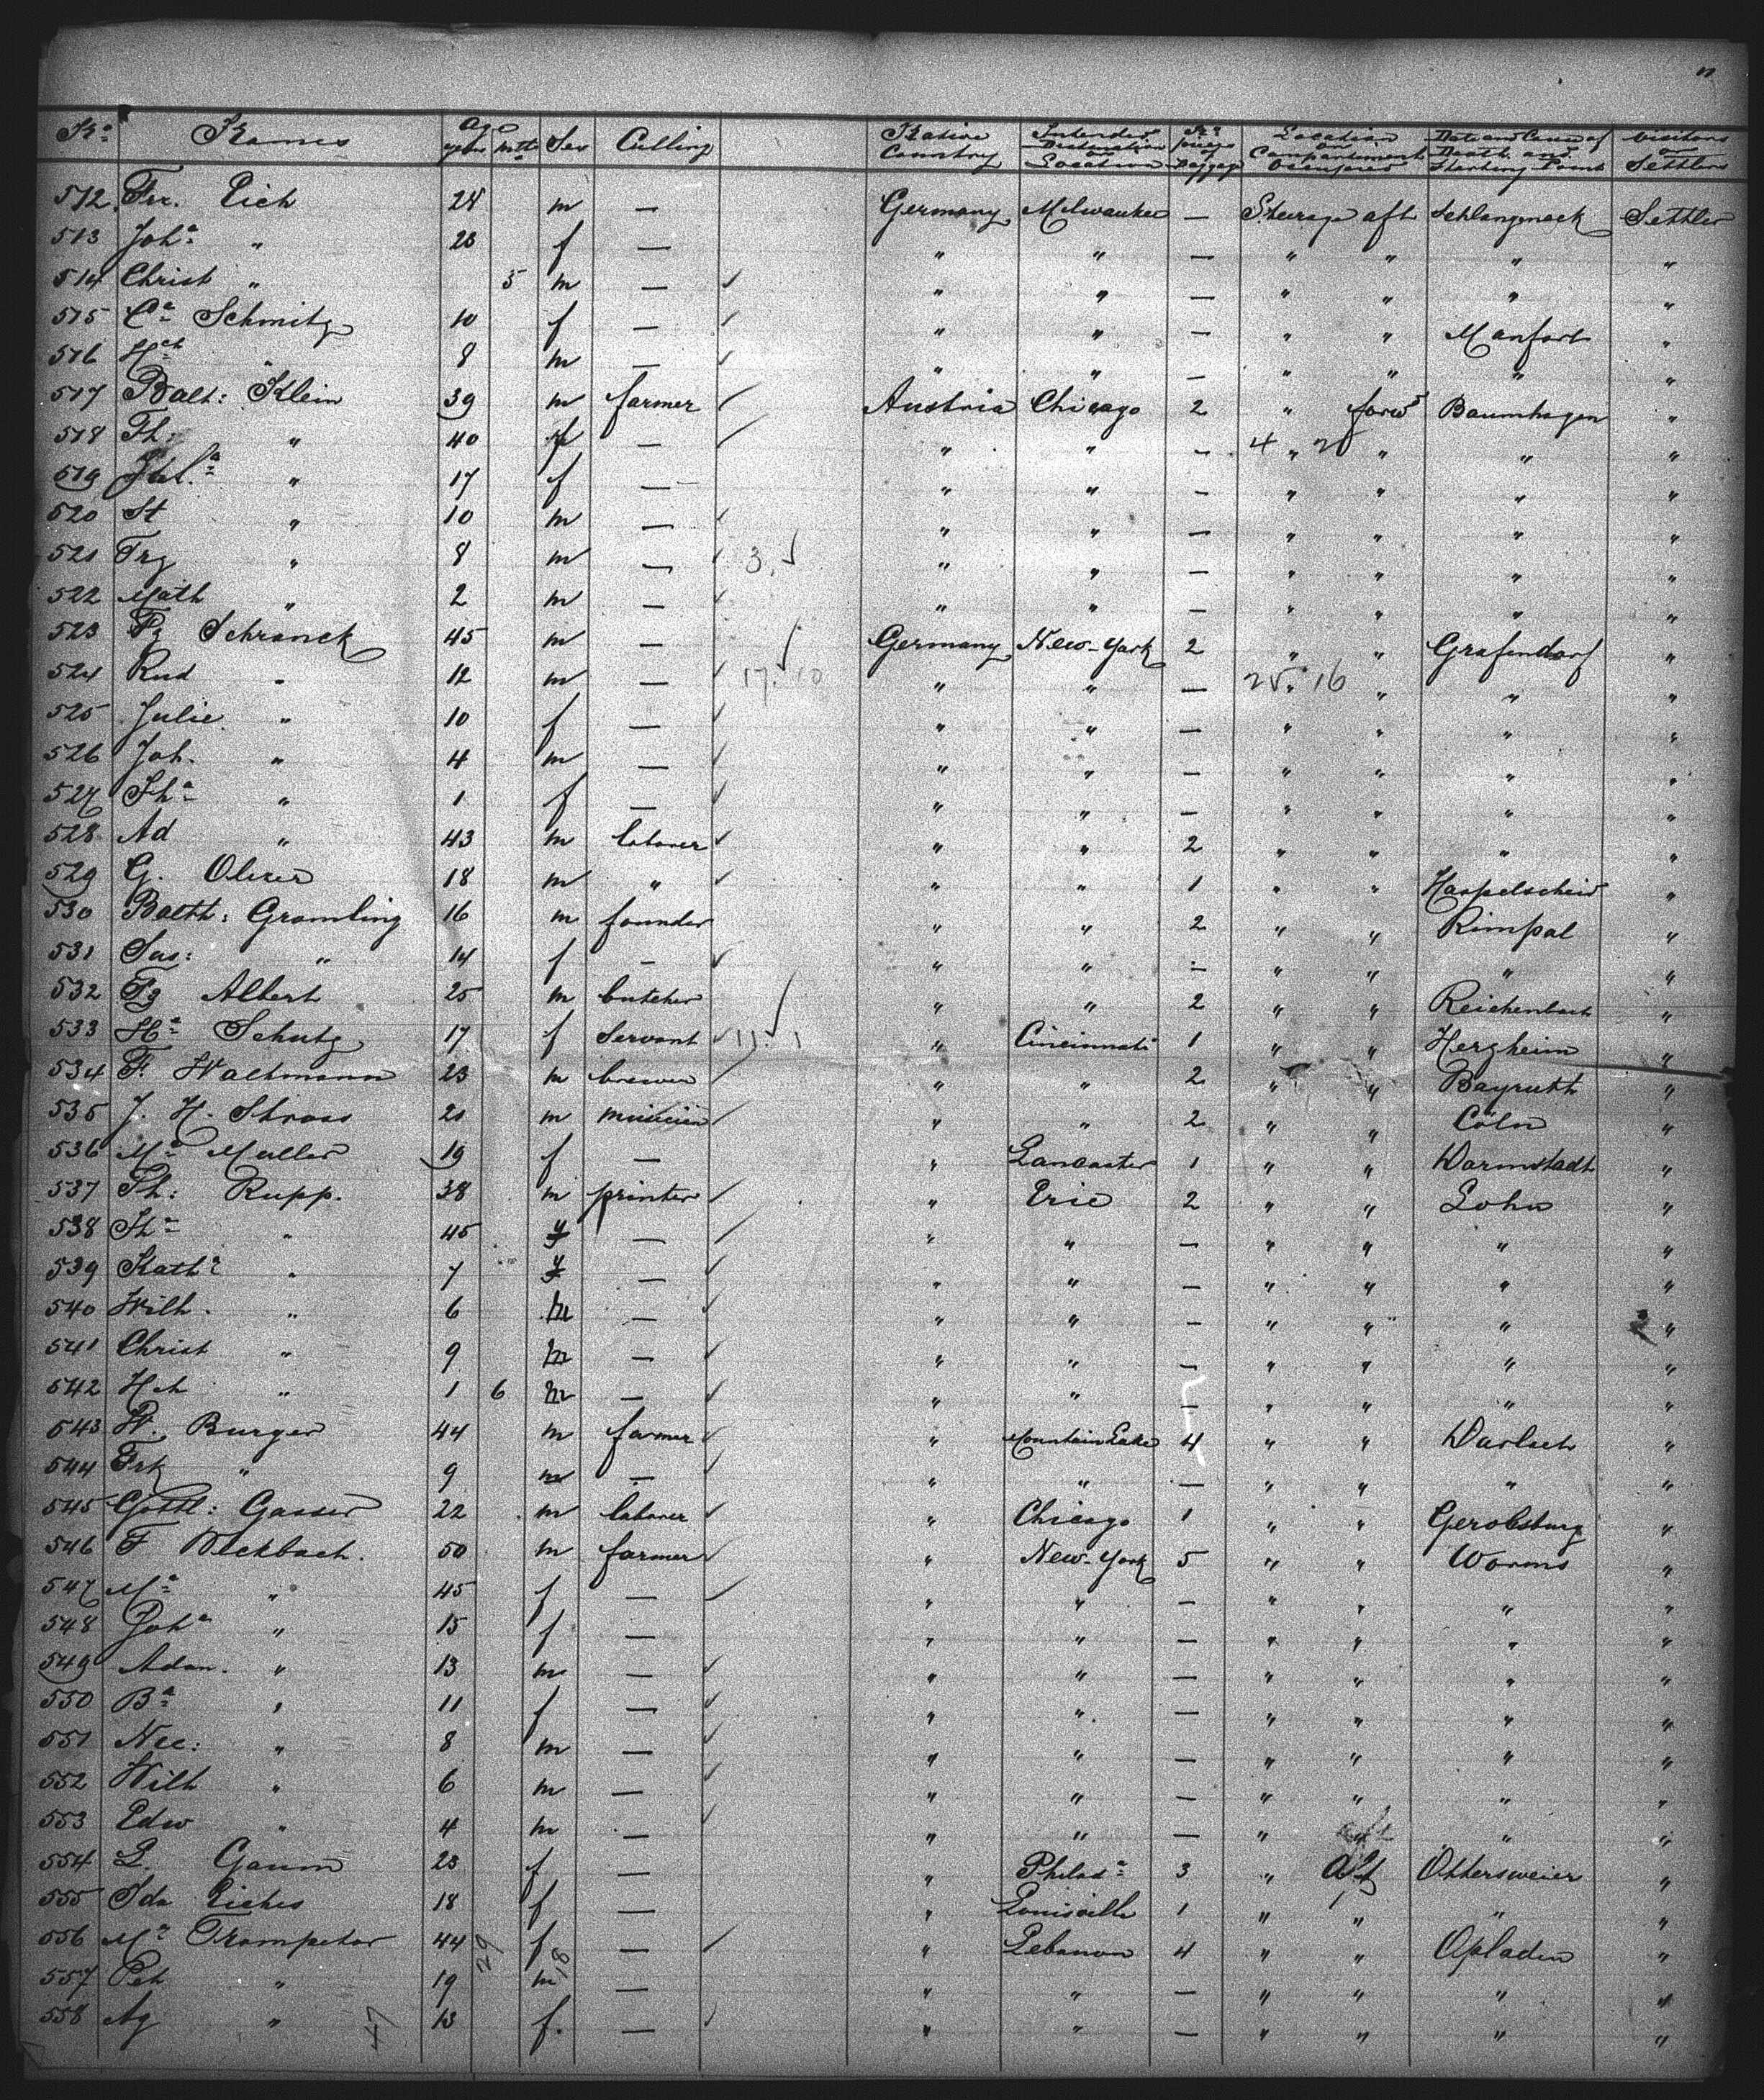 No Names Age years mths Sex Calling Native Country Intended Destination or Location No pieces of Baggage Location or Compartment Occupied Date and Cause of Death and Starting Point Visitors or Settlers
512. Fr. Eich 28 m — Germany Milwaukee — Steerage aft Schlangenack Settler
513 Joha " 23 f — " " — " " " "
514 Christ " 5 m — " " — " " " "
515 Ca Schmitz 10 f — " " — " " Manfort "
516 Hch " 8 m — " " — " " " "
517 Balt: Klein 39 m farmer Austria Chicago 2 " forwd Baumhagen "
518 Th: " 40 f — " " — 4 " 20 " " "
519 " 17 f — " " — " " " "
520 St " 10 m — " " — " " " "
521 Frz " 8 m — 3. " " — " " " "
522 Math " 2 m — " " — " " " "
523 Fz Schranck 45 m — Germany New-York 2 " " Grafendorf "
524 Rud " 12 m — 17. 10 " " — 25 " 16 " " "
525 Julie " 10 f — " " — " " " "
526 Joh. " 4 m — " " — " " " "
527 Tha " 1 f — " " — " " " "
528 Ad " 43 m laborer " " 2 " " " "
529 G. Olizer 18 m " " " 1 " " Haspelscheid "
530 Balth: Gramling 16 m founder " " 2 " " Rimpal "
531 Sus: " 14 f — " " — " " " "
532 Fz Albert 25 m butcher " " 2 " " Reichenbach "
533 Ha Schutz 17 f Servant 11. 1 " Cincinnati 1 " " Herzheim "
534 F. Waltmann 23 m brewer " " 2 " " Bayruth "
535 J. H. Stross 21 m musician " " 2 " " Cöln "
536 Ma Muller 19 f — " Lancaster 1 " " Darmstadt "
537 Th: Rupp. 38 m printer " Erie 2 " " Lohn "
538 Tha " 45 f — " " — " " " "
539 Katha " 7 f — " " — " " " "
540 Wilh. " 6 m — " " — " " " "
541 Christ " 9 m — " " — " " " "
542 Hch " 1 6 m — " " — " " " "
543 W. Burger 44 m farmer " Mountain Lake 4 " " Darlach "
544 Frk " 9 m — " " — " " " "
545 Gottl: Gasser 22 m laborer " Chicago 1 " " Gerolsburg "
546 F Weckbach. 50 m farmer " New-York 5 " " Worms "
547 Ma " 45 f — " " — " " " "
548 Joha " 15 f — " " — " " " "
549 Adam. " 13 m — " " — " " " "
550 Ba " 11 f — " " — " " " "
551 Nic: " 8 m — " " — " " " "
552 Wilh " 6 m — " " — " " " "
553 Edw " 4 m — " " — " " " "
554 L. Gaum 23 f — " Philada 3 " aft Ottersweier "
555 Ida Eiches 18 f — " Louisville 1 " " " "
556 Ma Trompeter 44 f — " Lebanon 4 " " Opladen "
557 Pet " 19 m — " " — " " " "
558 Ag " 13 f. — " " — " " " "
47 29 18